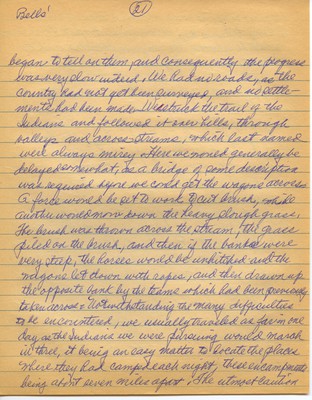 Bells'
21
began to tell on them, and consequently the progress
was very slow indeed, We had no roads, as the
country had not yet been surveyed, and no settle-
ments had been made. We struck the trail of the
Indians and followed it over hills, through
valleys and across streams, which last named
were always mirey. Here we would generally be
delayed somewhat, as a bridge of some discription
was required before we could get the wagons across.
A force would be set to work to cut brush, while
another would mow down the heavy slough grass.
The brush was thrown across the stream, the grass
piled on the brush, and then if the banks were
very steep, the horses would be unhitched and the
wagons let down with ropes, and then drawn up
the opposite bank by the teams which had been previously
taken across. Notwithstanding the many difficulties
to be encountered, we usually traveled as far in one
day as the Indians we were pursuing would march
in three, it being an easy matter to locate the places
where they had camped each night, these encampments
being about seven miles apart. The utmost caution